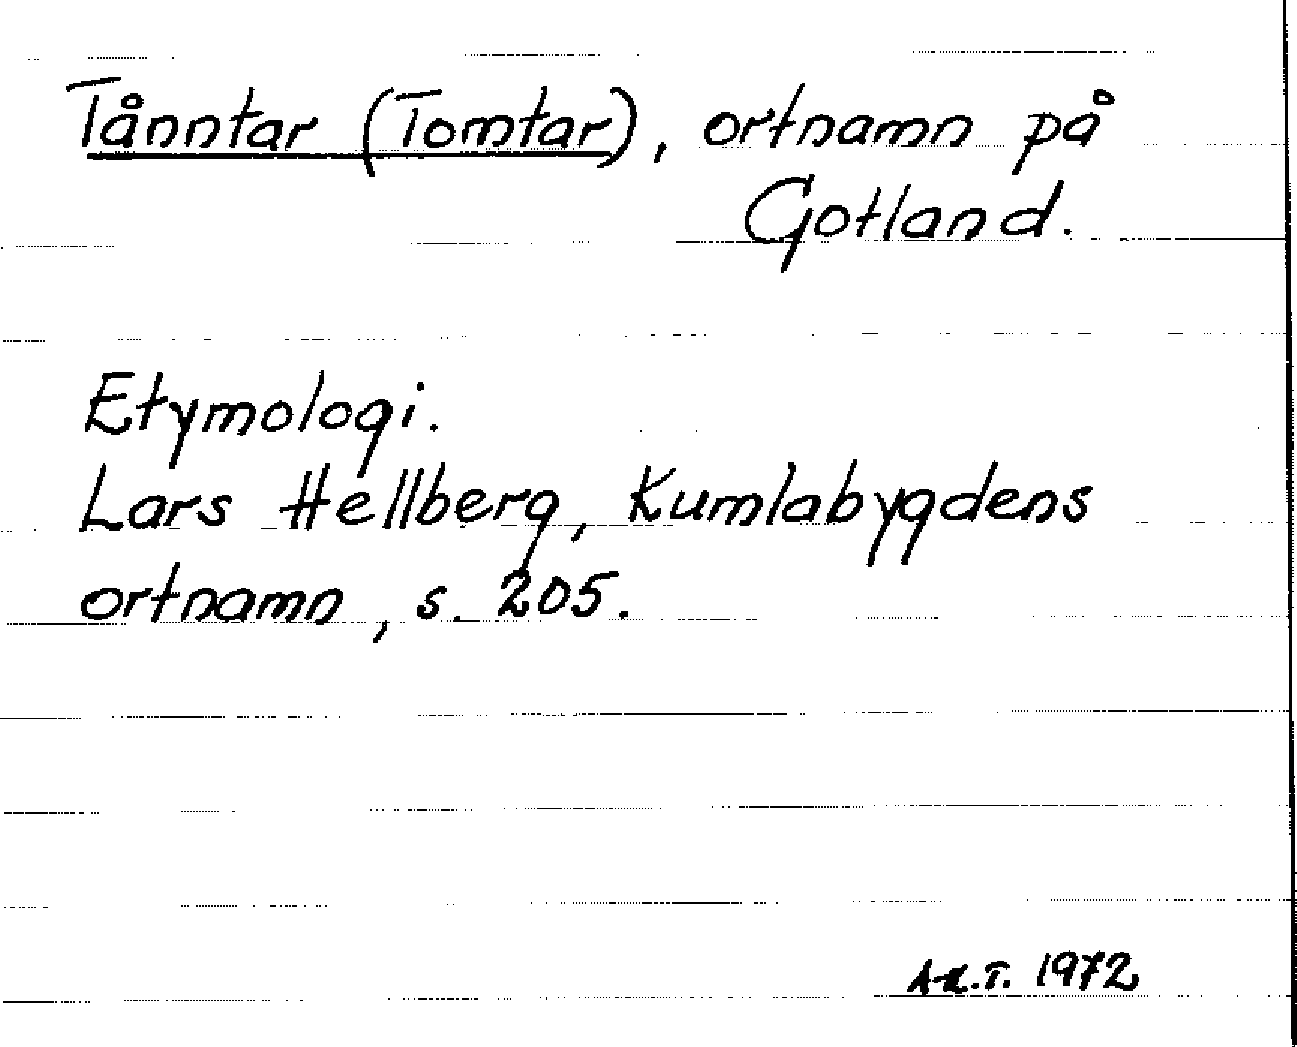 Tånntar (Tomtar), ortnamn på
Gotland.
Etymologi.
Lars Hellberg, Kumlabygdens
ortnamn, s. 205.
A-K.T. 1972